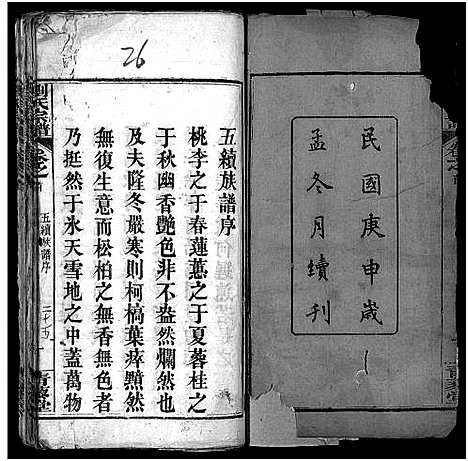 民國庚申歲
孟冬月續刊
26
五續族譜序
桃李之于春蓮蕙之于夏蓉桂之
于秋幽香艷色非不盎然爛然也
及夫隆冬嚴寒則柯槁葉瘁黯然
無復生意而松柏之無香無色者
乃挺然于氷天雪地之中蓋萬物
五續族譜序